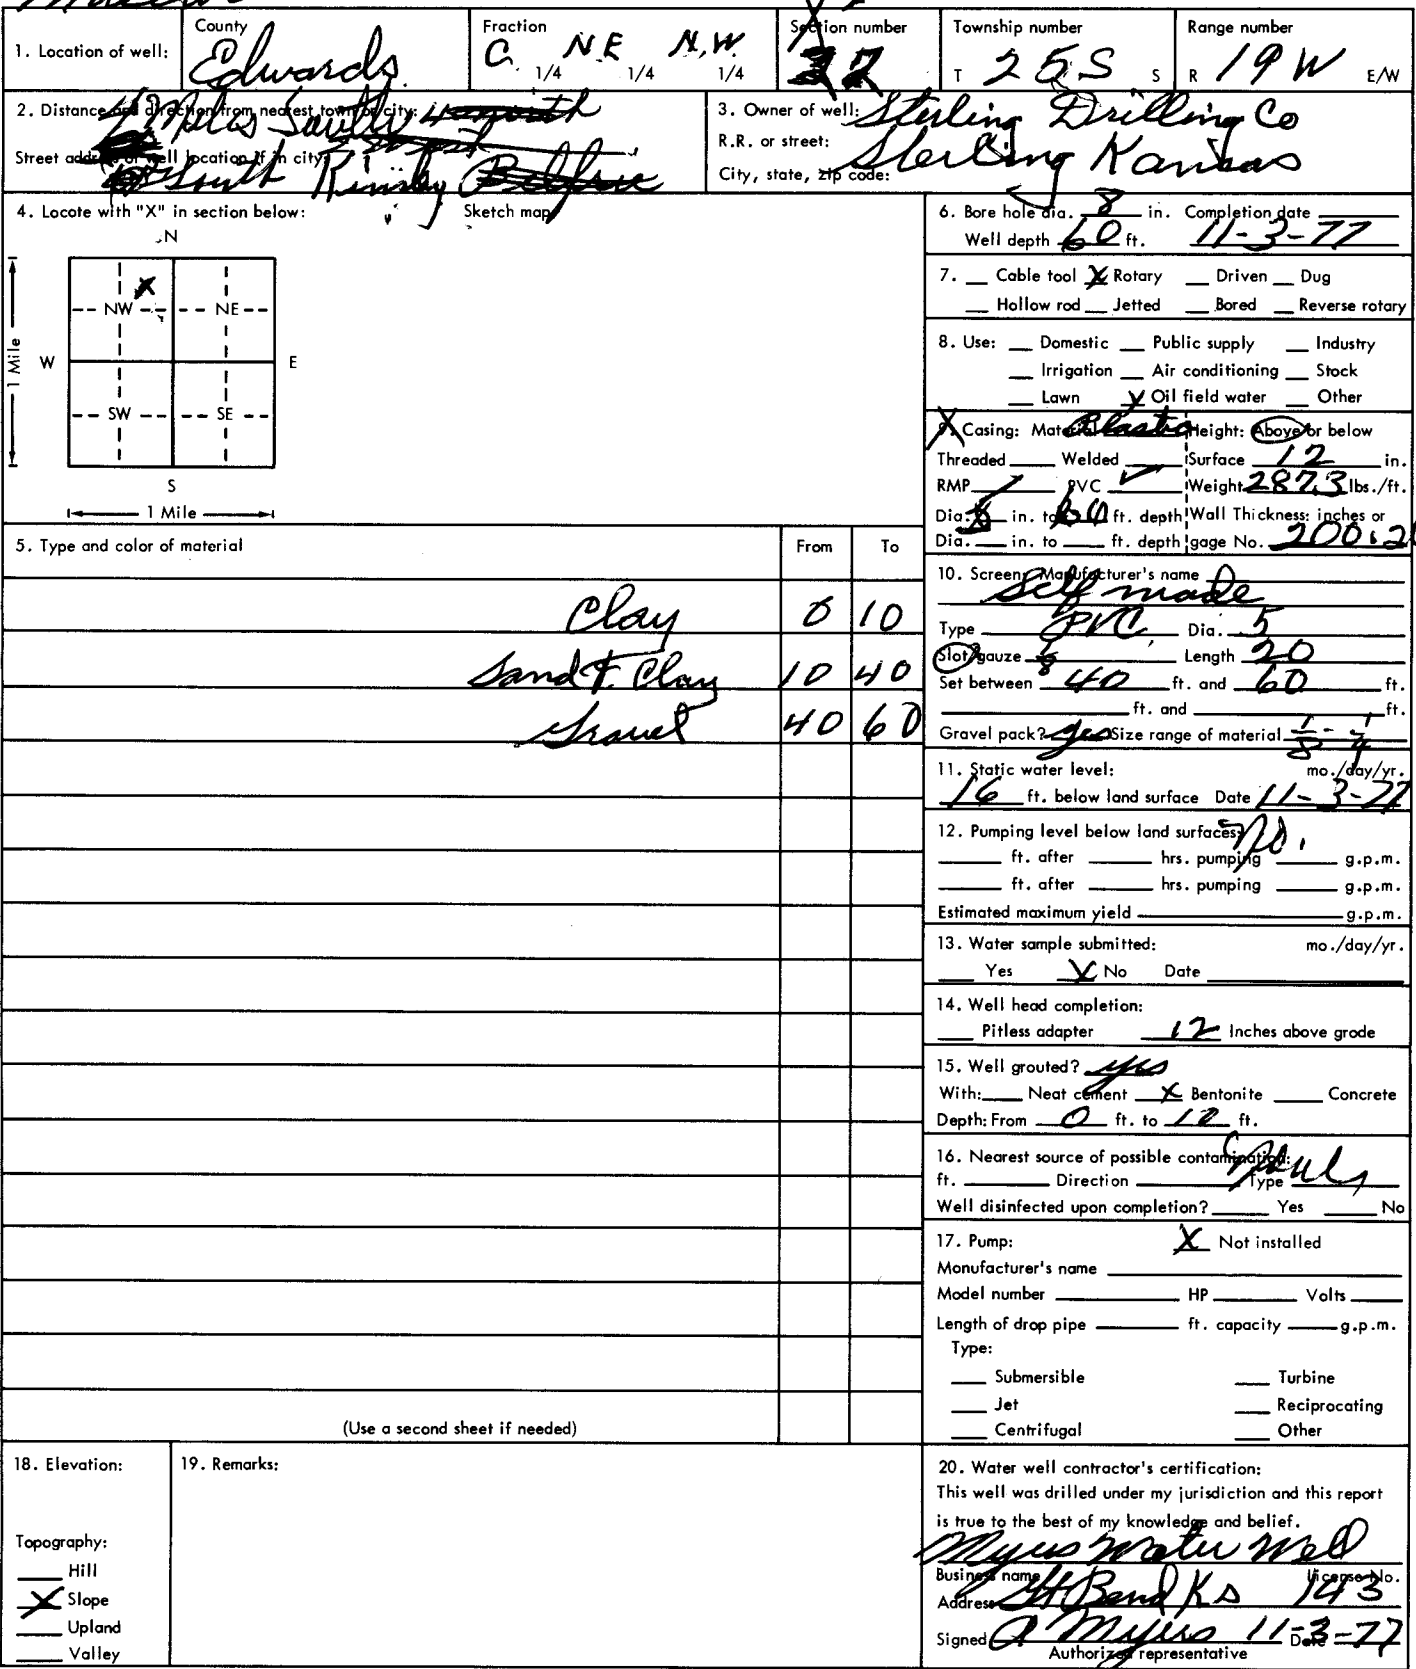 County
Fraction
Section number
Township number
Range number
1. Location of well:
Edwards
C NE N.W
1/4 1/4 1/4
T 25S S
R 19W E/W
2. Distance and direction from nearest town or city:
Miles South
Street address of well location if in city:
South Kinsley
3. Owner of well: Sterling Drilling Co
R.R. or street:
City, state, zip code: Sterling Kansas
4. Locate with "X" in section below:
Sketch map
N
X
NW NE
W E
1 Mile
SW SE
S
1 Mile
5. Type and color of material From To
Clay 0 10
Sand & Clay 10 40
Gravel 40 60
(Use a second sheet if needed)
6. Bore hole dia. 8 in. Completion date
Well depth 60 ft. 11-3-77
7. Cable tool X Rotary Driven Dug
Hollow rod Jetted Bored Reverse rotary
8. Use: Domestic Public supply Industry
Irrigation Air conditioning Stock
Lawn X Oil field water Other
9. Casing: Material Plastic Height: Above or below
Threaded Welded Surface 12 in.
RMP PVC ✓ Weight 287.3 lbs./ft.
Dia. in. to ft. depth Wall Thickness: inches or
Dia. in. to ft. depth gage No. 200.2
10. Screen: Manufacturer's name
Self made
Type PVC Dia. 5
Slot/gauze Length 20
Set between 40 ft. and 60 ft.
ft. and ft.
Gravel pack? yes Size range of material 1/8 - 1/4
11. Static water level: mo./day/yr.
16 ft. below land surface Date 11-3-77
12. Pumping level below land surfaces: No.
ft. after hrs. pumping g.p.m.
ft. after hrs. pumping g.p.m.
Estimated maximum yield g.p.m.
13. Water sample submitted: mo./day/yr.
Yes X No Date
14. Well head completion:
Pitless adapter 12 Inches above grade
15. Well grouted? yes
With: Neat cement X Bentonite Concrete
Depth: From 0 ft. to 10 ft.
16. Nearest source of possible contamination:
ft. Direction Type
Well disinfected upon completion? Yes No
17. Pump: X Not installed
Manufacturer's name
Model number HP Volts
Length of drop pipe ft. capacity g.p.m.
Type:
Submersible Turbine
Jet Reciprocating
Centrifugal Other
18. Elevation:
Topography:
Hill
X Slope
Upland
Valley
19. Remarks:
20. Water well contractor's certification:
This well was drilled under my jurisdiction and this report
is true to the best of my knowledge and belief.
Myers Water Well
Business name License No.
Address Gt Bend Ks 143
Signed A Myers 11-3-77 Date
Authorized representative